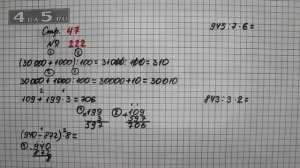 4UA-5.RU
Стр. 47
№ 222
(30 000 + 1000) : 100 = 31000 : 100 = 310
30 000 + 1000 : 100 = 30000 + 10 = 30010
109 + 199 · 3 = 706
199
3
597
109
597
706
(940 - 872) · 8 =
940
872
8
945 : 7 · 6 =
843 : 3 · 2 =